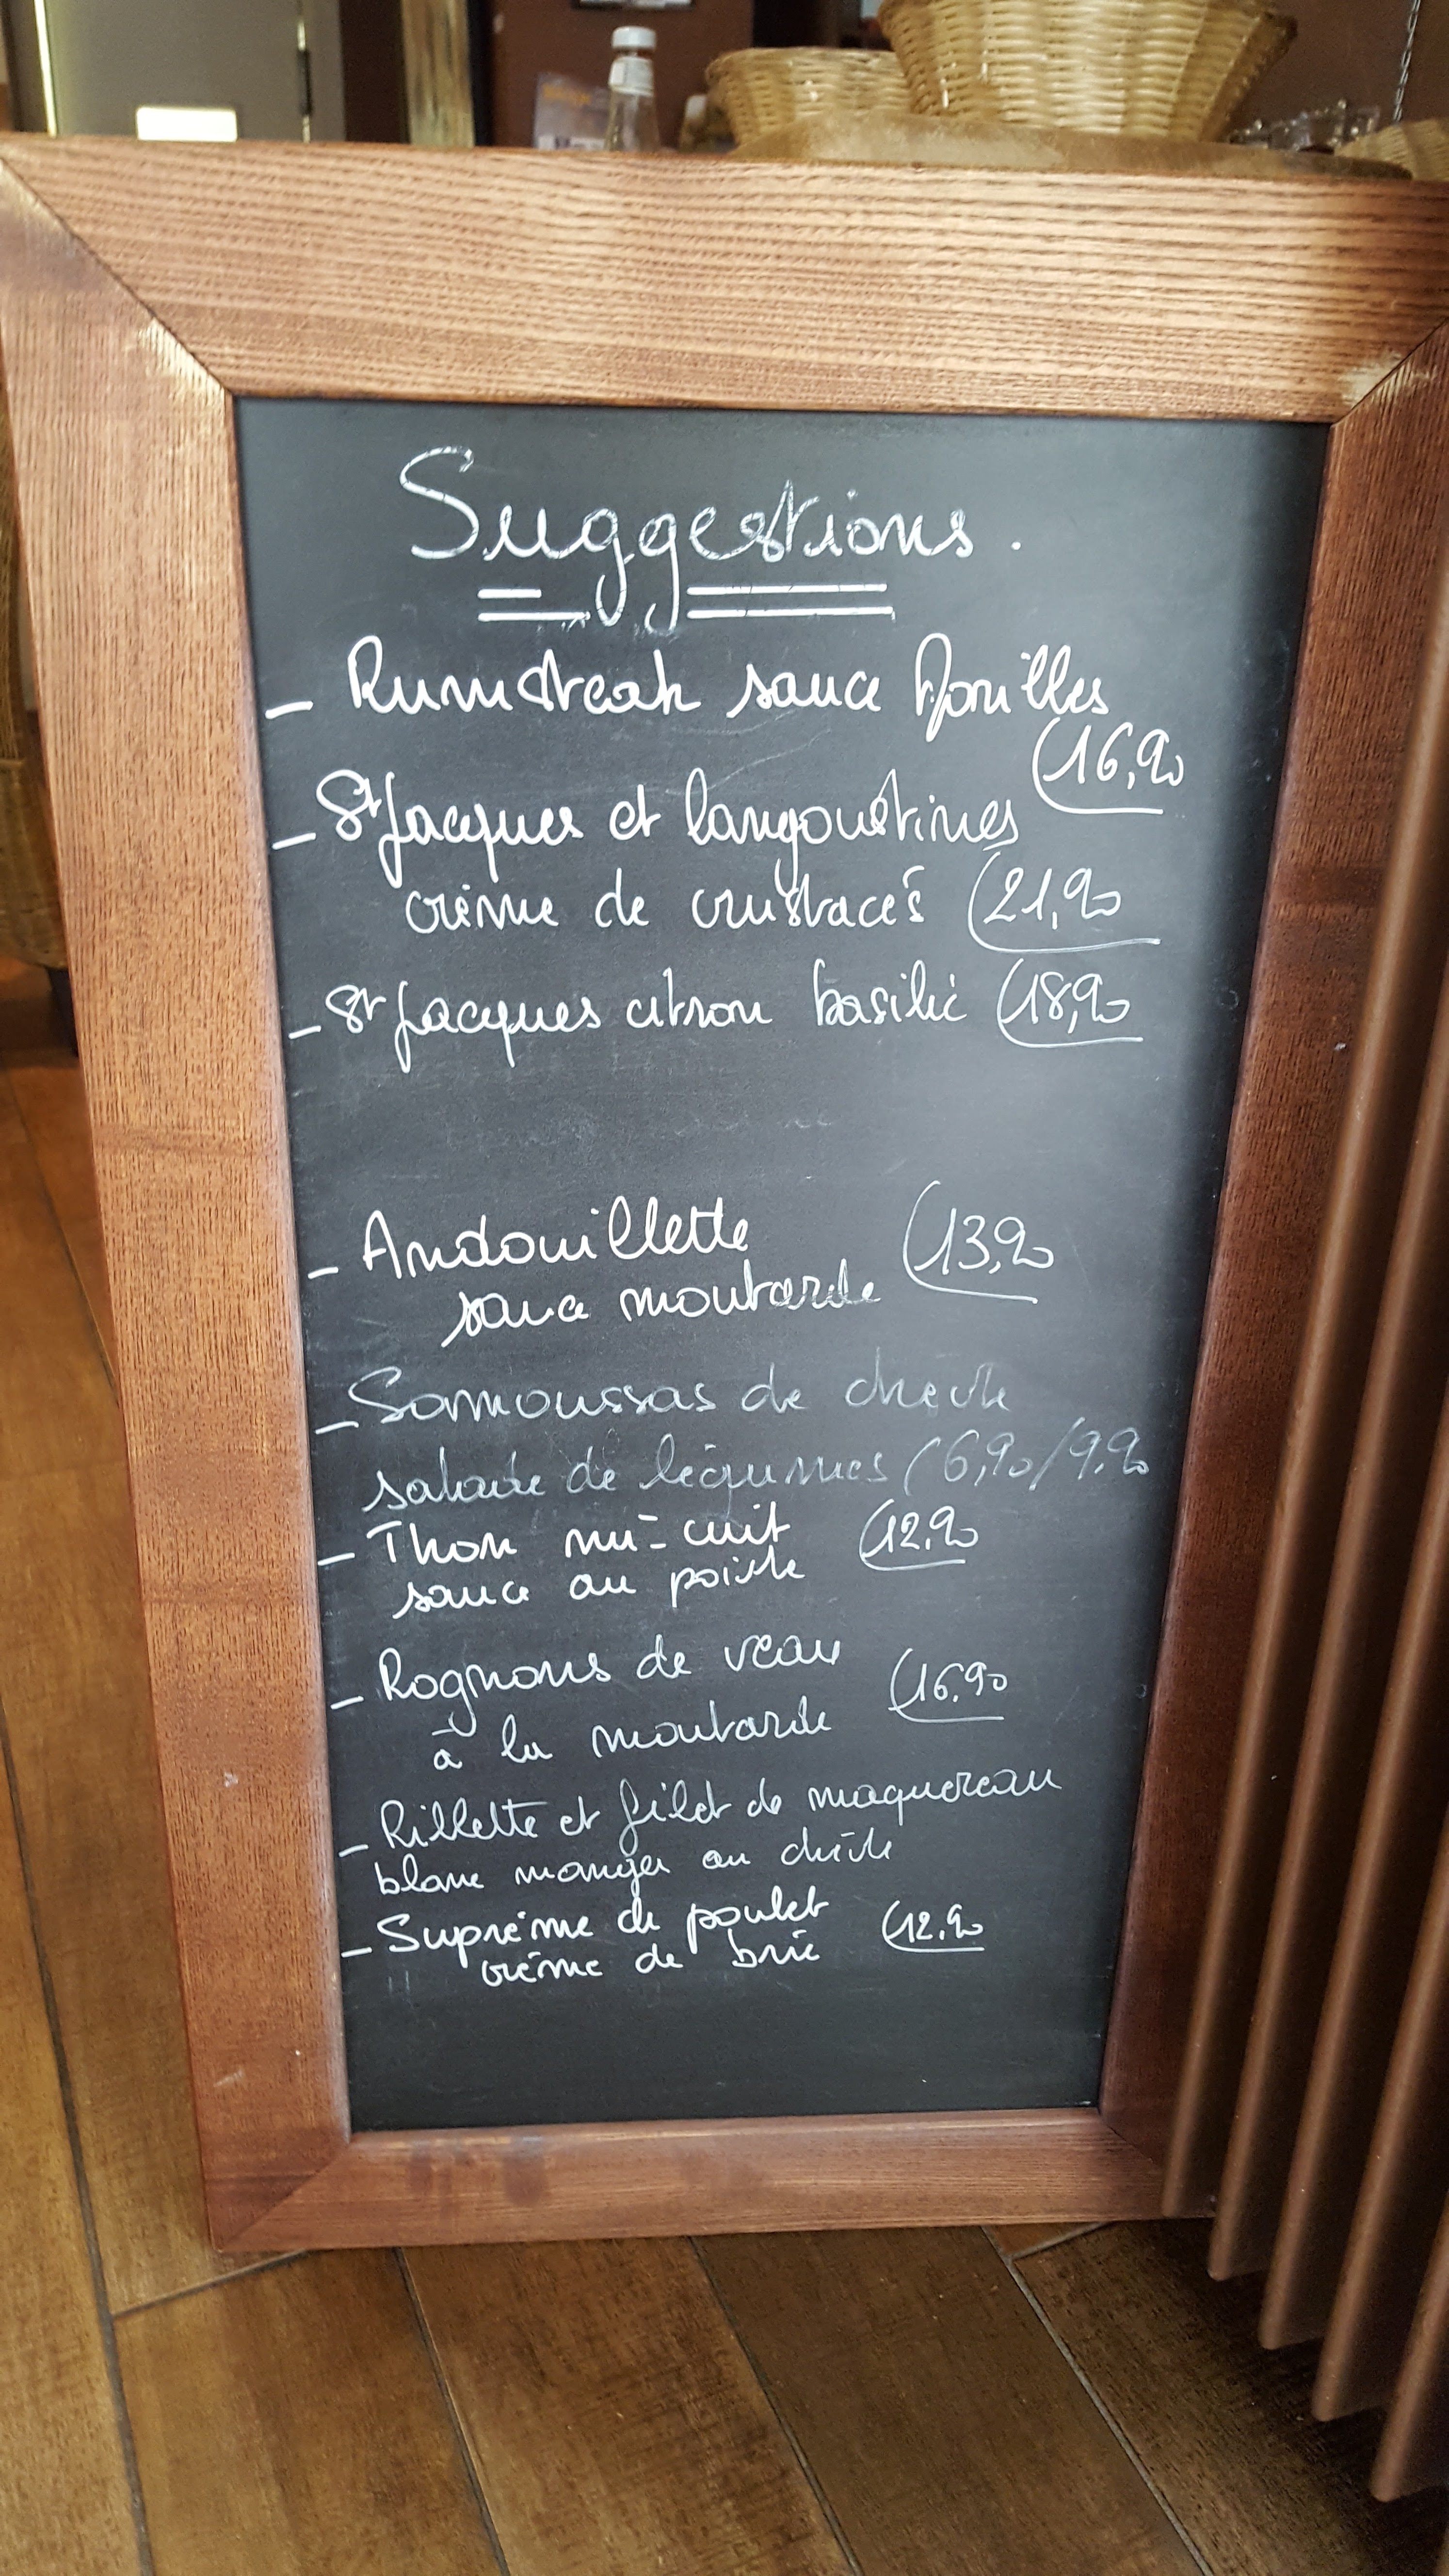 Suggestions.
- Rumsteak sauce Morilles
(16,90
- St Jacques et langoustines
crème de crustacés (21,90
- St Jacques citron basilic (18,90
- Andouillette (13,90
sauce moutarde
- Samoussas de chèvre
salade de légumes (6,90/9,90
- Thon mi-cuit (12.90
sauce au poivre
- Rognons de veau (16.90
à la moutarde
- Rillette et filet de maquereau
blanc manger au chèvre
- Suprême de poulet (12.90
crème de brie